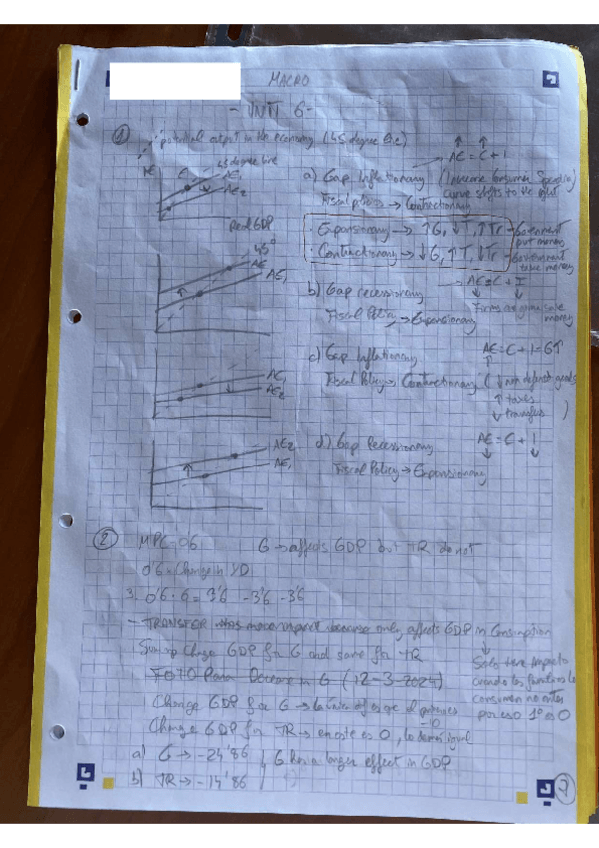 MACRO
- UNIT 6 -
1
potential output in the economy (45 degree line)
AE
45 degree line
AE1
AE2
Real GDP
a) Gap Inflationary (Increase Consumer Spending)
AE = C + I
curve shifts to the right
Fiscal policy → Contractionary
Expansionary → ↑G, ↓T, ↑Tr → Government put money
Contractionary → ↓G, ↑T, ↓Tr → Government take money
45°
AE
AE1
b) Gap recessionary
AE = C + I
Fiscal Policy → Expansionary
money
c) Gap Inflationary
AE = C + I + G↑
Fiscal Policy → Contractionary (↓ non defense goods
↑ taxes
↓ transfers)
AE1
AE2
d) Gap Recessionary
AE = C + I
Fiscal Policy → Expansionary
AE2
AE1
2
MPC 06 G → affects GDP but TR do not
0'6 · Change in YD
3. 0'6 · 6 = 3'6 -3'6 -3'6
- TRANSFER has more impact because only affects GDP in Consumption
Sum up Change GDP for G and same for TR
Solo tiene impacto
cuando los
consumen no antes
por eso 1º es 0
FOTO Para Decrease in G (12-3-2024)
Change GDP for G → la única es que el
-10
Change GDP for TR → en este es 0, lo demás igual
a) G → -24'86
G has a larger effect in GDP
b) TR → -14'86
7